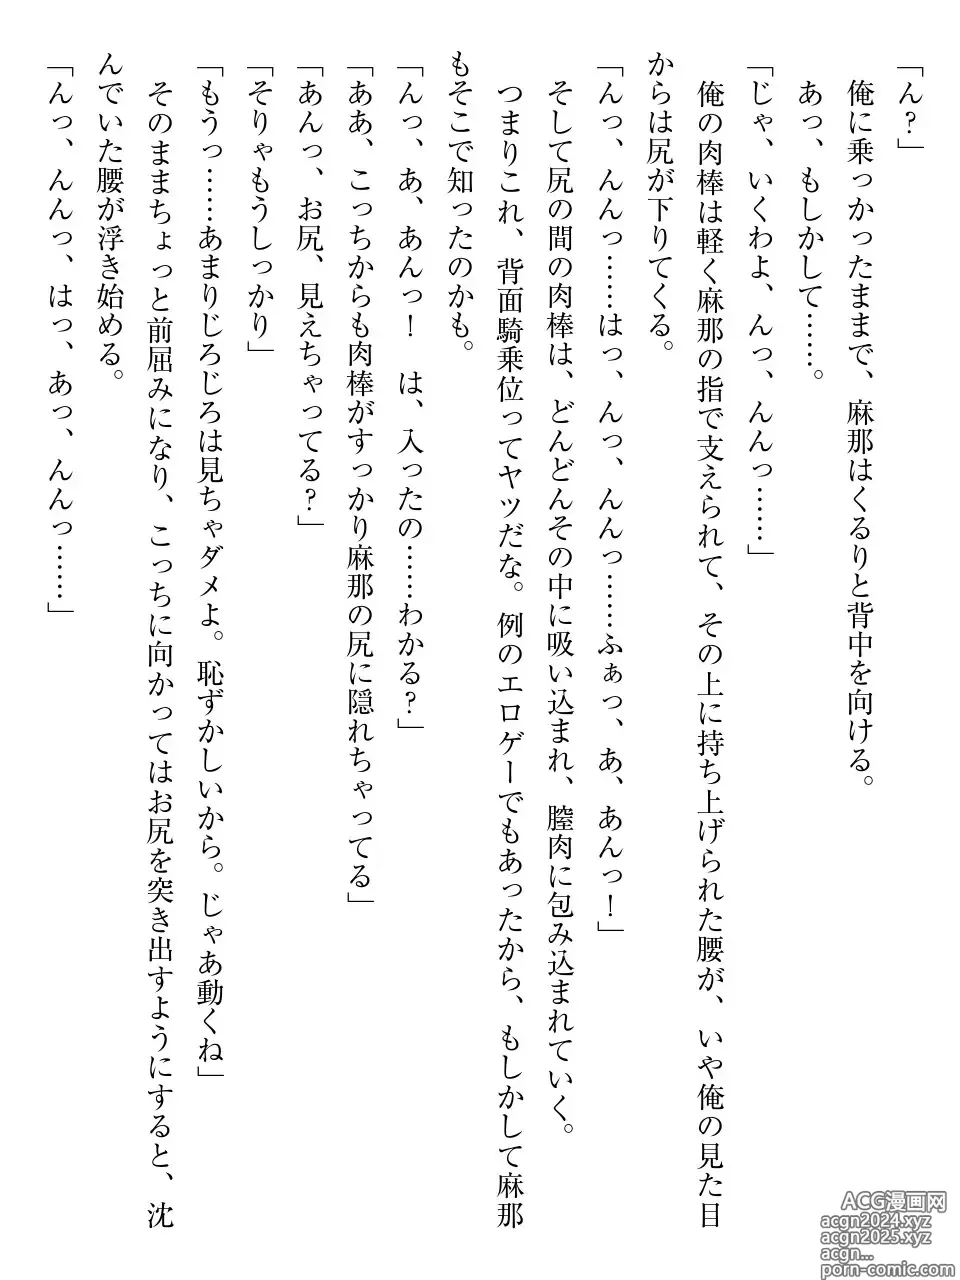 「ん？」
俺に乗っかったままで、麻那はくるりと背中を向ける。
あっ、もしかして……。
「じゃ、いくわよ、んっ、んんっ……」
俺の肉棒は軽く麻那の指で支えられて、その上に持ち上げられた腰が、いや俺の見た目
からは尻が下りてくる。
「んっ、んんっ……はっ、んっ、んんっ……ふぁっ、あ、あんっ！」
そして尻の間の肉棒は、どんどんその中に吸い込まれ、膣肉に包み込まれていく。
つまりこれ、背面騎乗位ってヤツだな。例のエロゲーでもあったから、もしかして麻那
もそこで知ったのかも。
「んっ、あ、あんっ！　は、入ったの……わかる？」
「ああ、こっちからも肉棒がすっかり麻那の尻に隠れちゃってる」
「あんっ、お尻、見えちゃってる？」
「そりゃもうしっかり」
「もうっ……あまりじろじろは見ちゃダメよ。恥ずかしいから。じゃあ動くね」
そのままちょっと前屈みになり、こっちに向かってはお尻を突き出すようにすると、沈
んでいた腰が浮き始める。
「んっ、んんっ、はっ、あっ、んんっ……」
ACG漫画网
acgn2024.xyz
acgn2025.xyz
acgn...
porn-comic.com